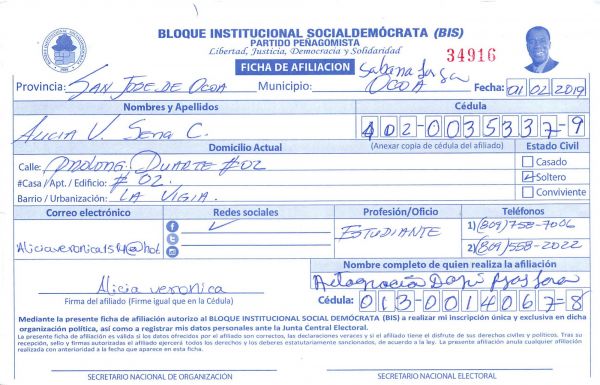 BLOQUE INSTITUCIONAL SOCIALDEMÓCRATA (BIS)
PARTIDO PEÑAGOMISTA
Libertad, Justicia, Democracia y Solidaridad
34916
FICHA DE AFILIACION
Provincia: SAN JOSE DE OCOA Municipio: Sabana Larga OCOA Fecha: 01 02 2019
Nombres y Apellidos Cédula
Alicia V. Sena C. 402-0035337-9
Domicilio Actual (Anexar copia de cédula del afiliado) Estado Civil
Calle: Prolong. Duarte #02 Casado
#Casa / Apt. / Edificio: #02. Soltero
Barrio / Urbanización: LA VIGIA. Conviviente
Correo electrónico Redes sociales Profesión/Oficio Teléfonos
ESTUDIANTE 1) (809) 758-7006
2) (809) 558-2022
Nombre completo de quien realiza la afiliación
Alicia veronica
Firma del afiliado (Firme igual que en la Cédula) Cédula: 013-0014067-8
Mediante la presente ficha de afiliación autorizo al BLOQUE INSTITUCIONAL SOCIAL DEMÓCRATA (BIS) a realizar mi inscripción única y exclusiva en dicha
organización política, así como a registrar mis datos personales ante la Junta Central Electoral.
La presente ficha de afiliación es válida si los datos ofrecidos por el afiliado son correctos, las declaraciones veraces y si el afiliado tiene el disfrute de sus derechos civiles y políticos. Tras su
recepción, sello y firmas autorizadas el afiliado ejercerá todos los derechos y los deberes estatutariamente sancionados, de acuerdo a la ley. La presente afiliación anula cualquier afiliación
realizada con anterioridad a la fecha que aparece en esta ficha.
SECRETARIO NACIONAL DE ORGANIZACIÓN SECRETARIO NACIONAL ELECTORAL